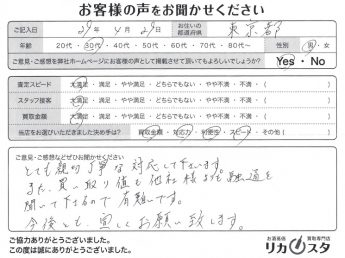 お客様の声をお聞かせください
ご記入日 29年 4月 29日 お住いの都道府県 東京都
年齢 20代・30代・40代・50代・60代・70代・80代〜 性別 男・女
ご意見・ご感想を弊社ホームページにお客様の声として掲載させて頂いてもよろしいでしょうか? Yes・No
査定スピード 大満足・満足・やや満足・どちらでもない・やや不満・不満・( )
スタッフ接客 大満足・満足・やや満足・どちらでもない・やや不満・不満・( )
買取金額 大満足・満足・やや満足・どちらでもない・やや不満・不満・( )
当店をお選びいただきました決め手は? 買取金額・対応力・利便性・スピード・その他( )
ご意見・ご感想などぜひお聞かせください
とても親切丁寧な対応して下さいます。
また、買い取り値も他社様よりも融通を
聞いて下さるので有難いです。
今後とも、宜しくお願い致します。
ご協力ありがとうございました。
この度は誠にありがとうございました。
お酒高価買取専門店
リカスタ